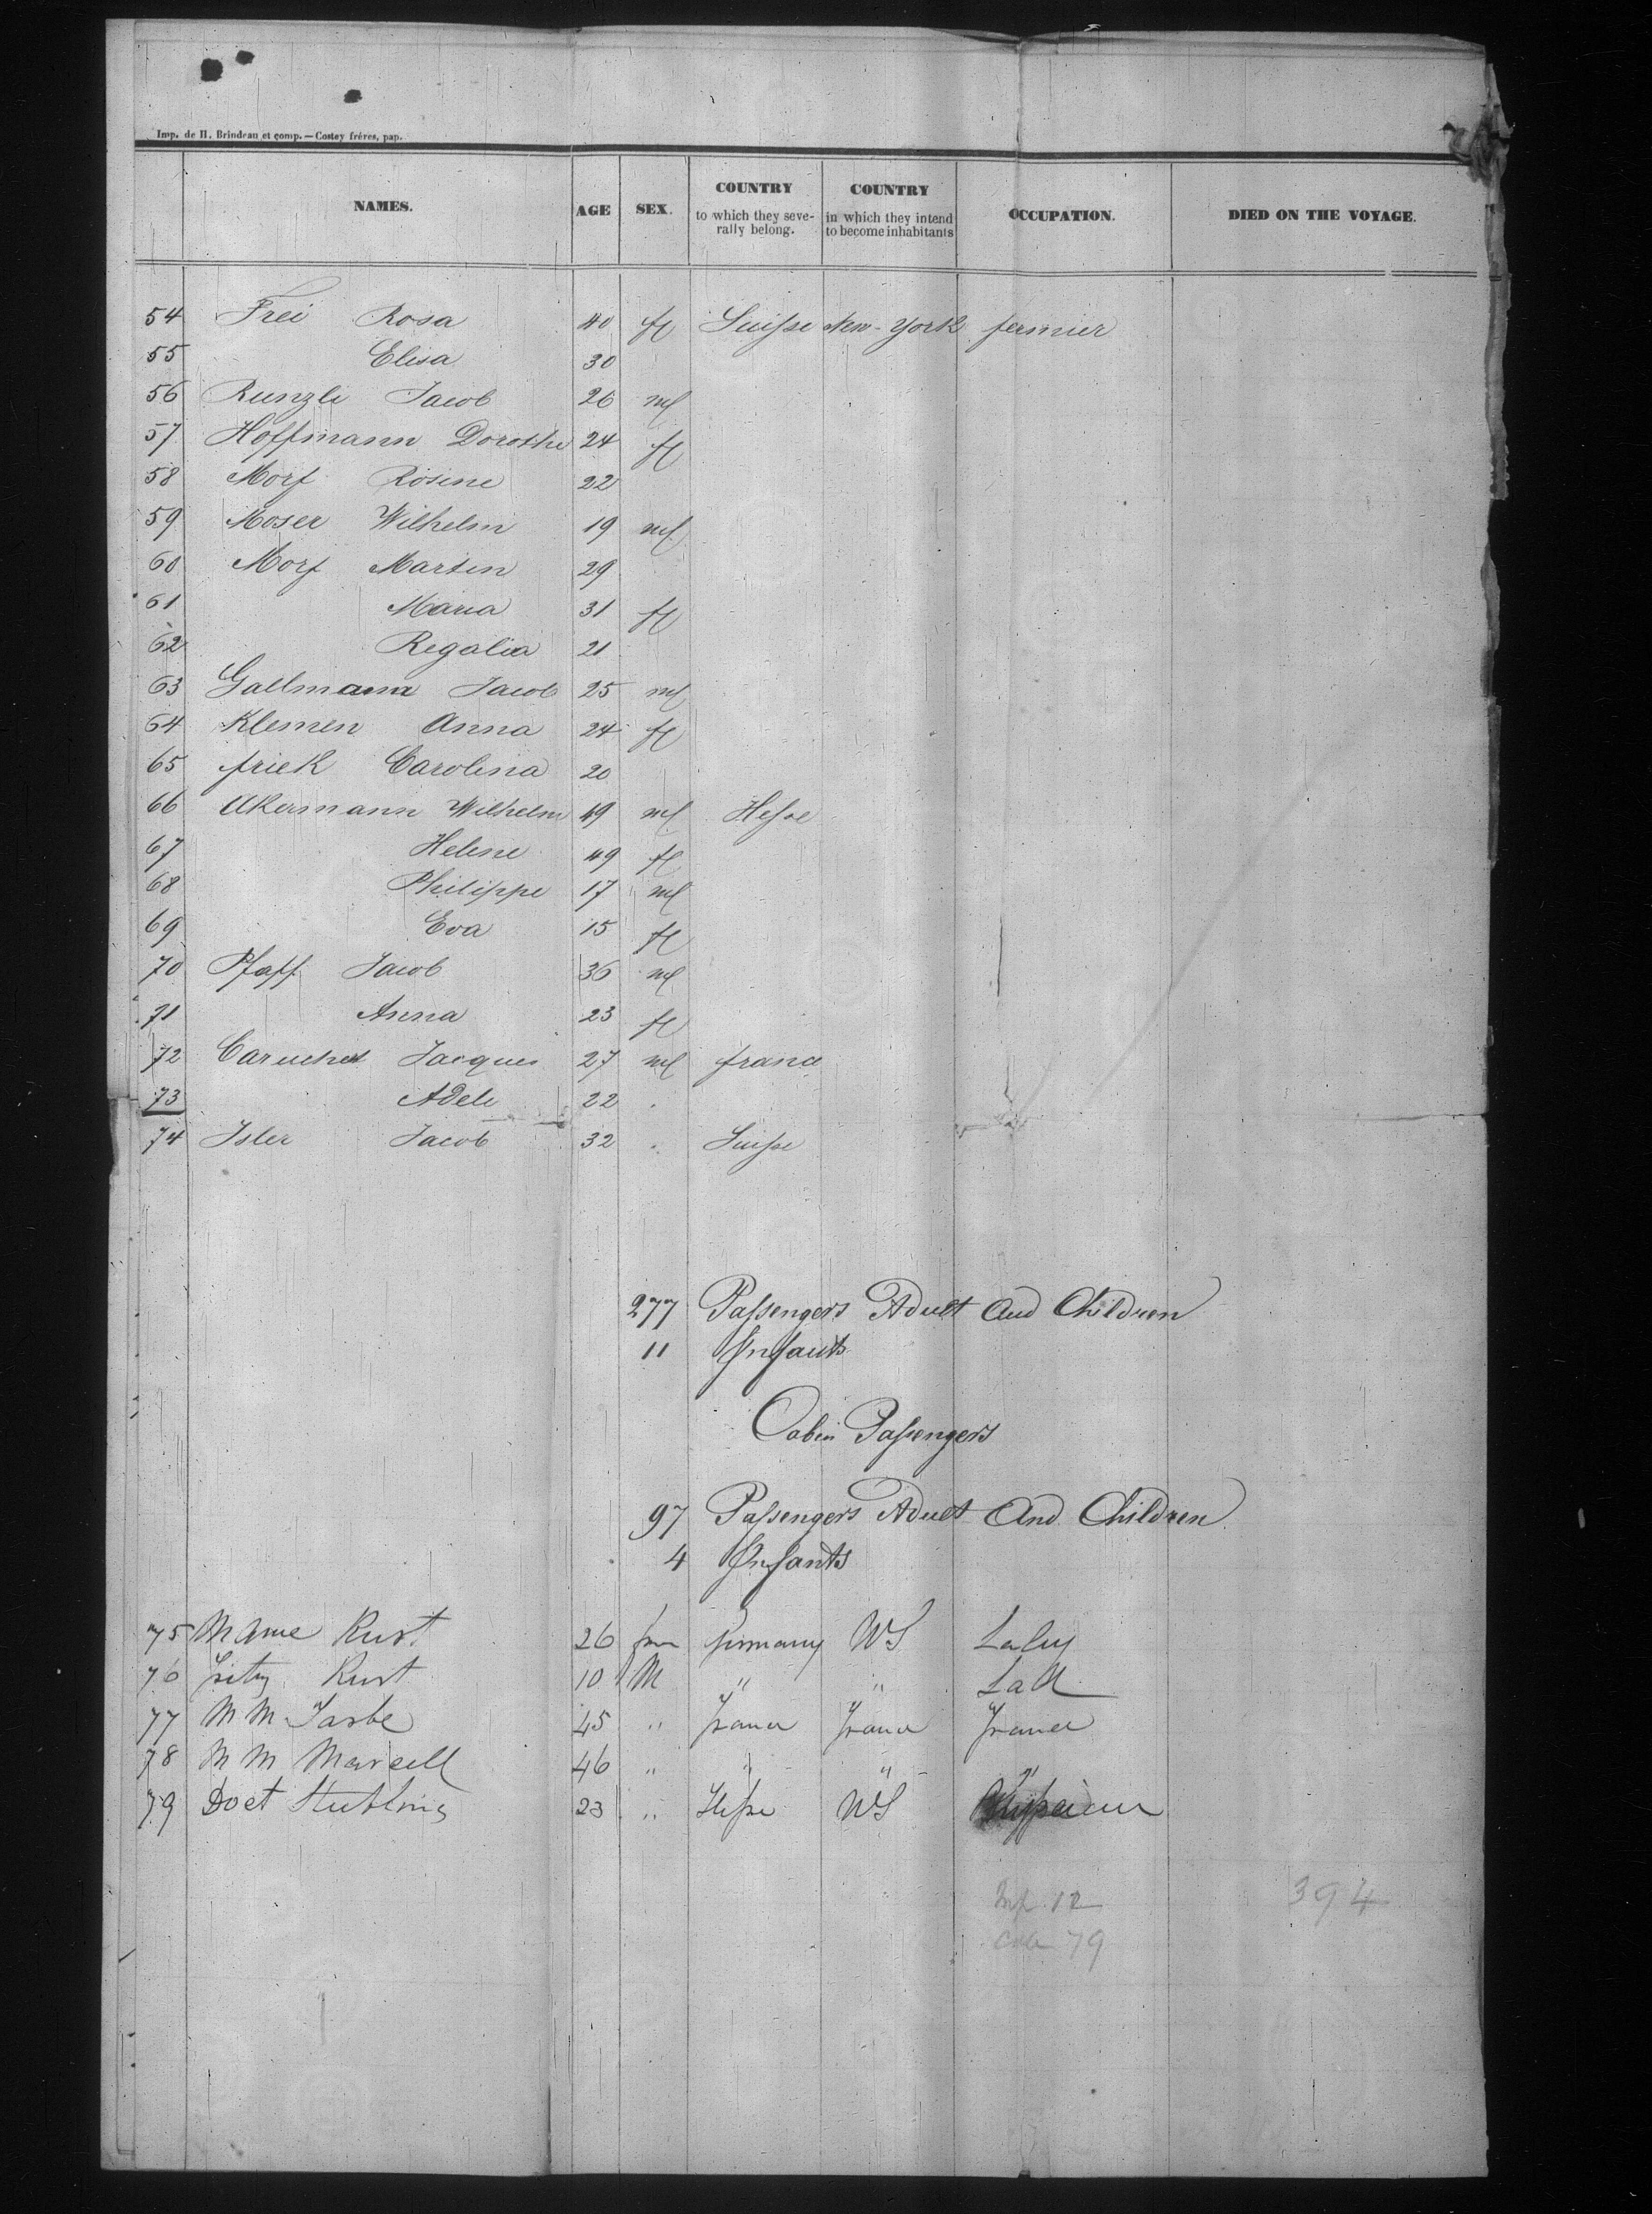 Imp. de H. Brindeau et comp. — Costey frères, pap.
NAMES. AGE SEX. COUNTRY to which they severally belong. COUNTRY in which they intend to become inhabitants OCCUPATION. DIED ON THE VOYAGE.
54 Frei Rosa 40 fl Suisse New-York fermier
55 Elisa 30
56 Runzli Jacob 26 ml
57 Hoffmann Dorothe 24 fl
58 Morf Rosine 22
59 Moser Wilhelm 19 ml
60 Morf Martin 29
61 Maria 31 fl
62 Regalia 21
63 Gallmann Jacob 25 ml
64 Klemen Anna 24 fl
65 frick Carolina 20
66 Akermann Wilhelm 49 ml Hesse
67 Helene 49 fl
68 Philippe 17 ml
69 Eva 15 fl
70 Pfaff Jacob 36 ml
71 Anna 23 fl
72 Jacques 27 ml france
73 Adele 22 .
74 Isler Jacob 32 . Suisse
277 Passengers Adult And Children
11 Infants
Cabin Passengers
97 Passengers Adult And Children
4 Infants
75 Mame Kust 26 fm Germany US Lady
76 Kust 10 M " " Lad
77 M M Tarbe 45 " France France France
78 M M Marcell 46 " " " "
79 Doct 23 " Hesse US
Inf. 12 394
Cab 79